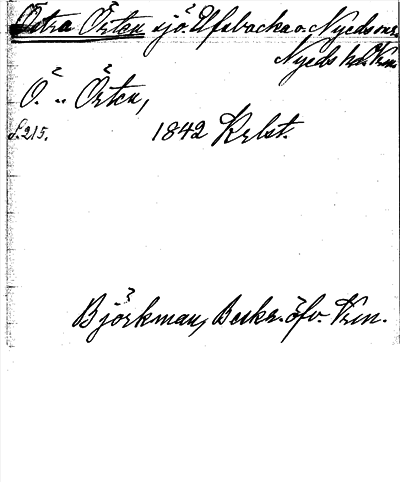 Östra Örten sjö. Ulfsbacka o. Nyeds snr.
Nyeds hd. Vrm.
Ö. „ Örten,
S. 215. 1842 Krlst.
Björkman, Beskr. öfv. Vrm.